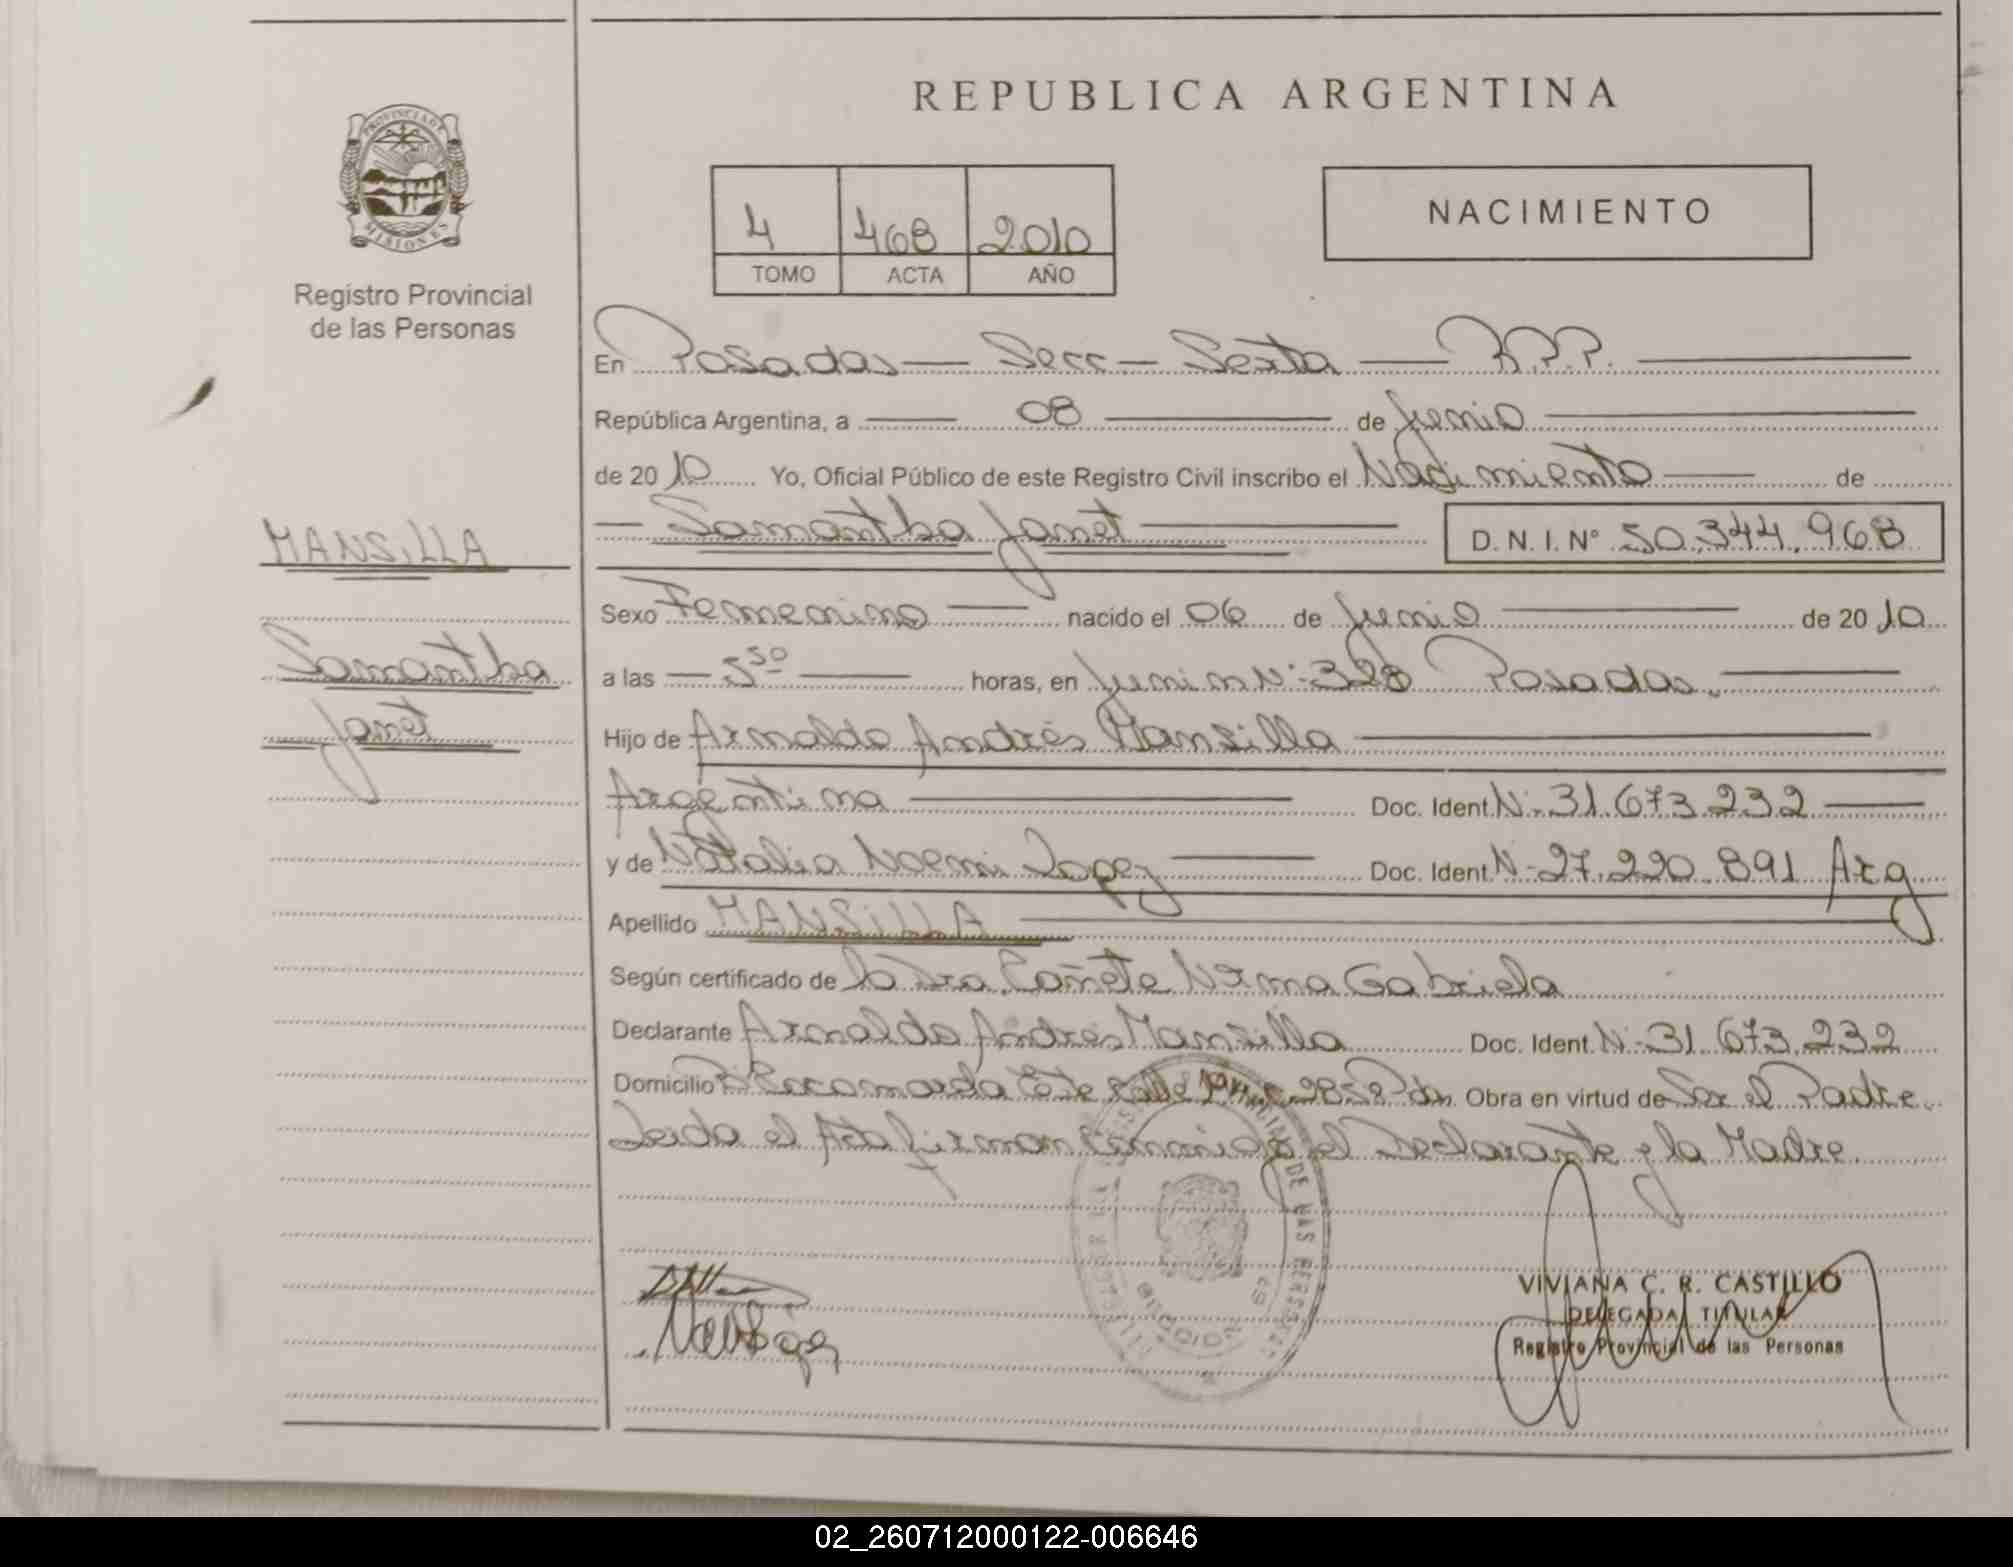 REPUBLICA ARGENTINA
PROVINCIA DE
MISIONES
Registro Provincial
de las Personas
4 468 2010
TOMO ACTA AÑO
NACIMIENTO
En Posadas — Secc — Sexta — R.P.P.
República Argentina, a 08 de Junio
de 2010 Yo, Oficial Público de este Registro Civil inscribo el Nacimiento de
Samantha Janet D. N. I. Nº 50.344.968
MANSILLA
Samantha
Janet
Sexo Femenino nacido el 06 de Junio de 2010
a las 5 50 horas, en Junin Nº 328 Posadas.
Hijo de Arnaldo Andrés Mansilla
Argentina Doc. Ident. Nº 31.673.232
y de Natalia Noemi Lopez Doc. Ident. Nº 27.220.891 Arg
Apellido MANSILLA
Según certificado de la Dra. Cañete Norma Gabriela
Declarante Arnaldo Andrés Mansilla Doc. Ident. Nº 31.673.232
Domicilio Este Calle 2858 Obra en virtud de Ser el Padre.
Leida el Acta firman conmigo el Declarante y la Madre.
DE LAS PERSONAS
VIVIANA C. R. CASTILLO
DELEGADA TITULAR
Registro Provincial de las Personas
02_260712000122-006646